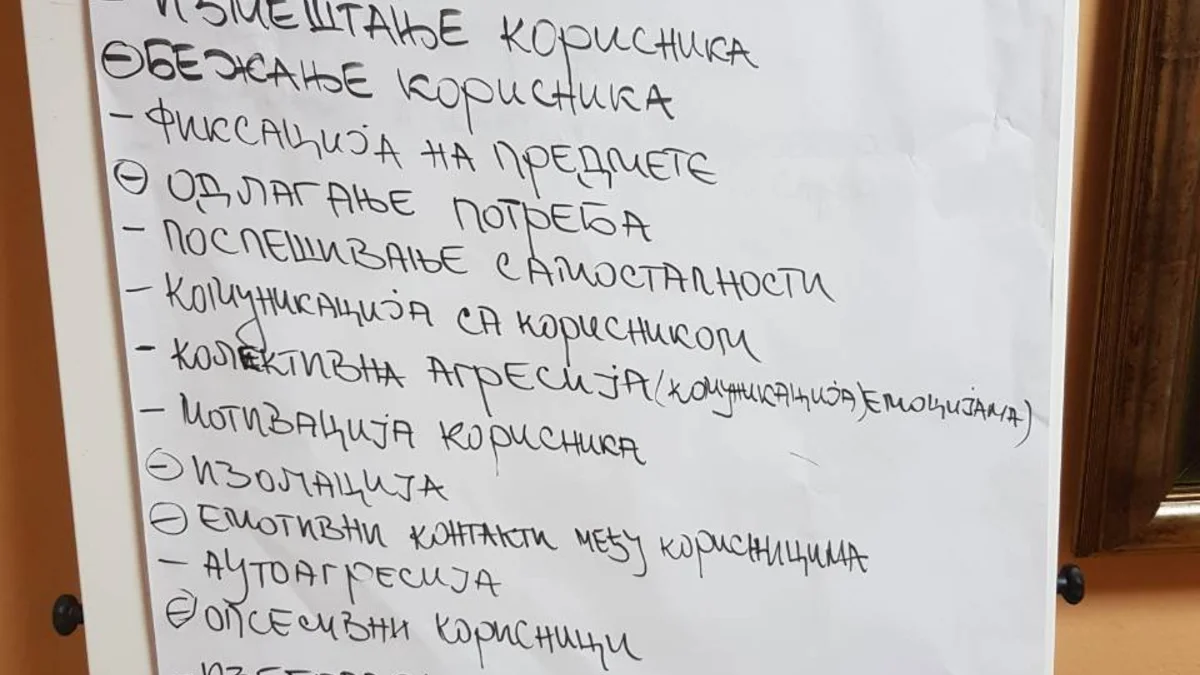 - ИЗМЕШТАЊЕ КОРИСНИКА
⊖ БЕЖАЊЕ КОРИСНИКА
- ФИКСАЦИЈА НА ПРЕДМЕТЕ
⊖ ОДЛАГАЊЕ ПОТРЕБА
- ПОСПЕШИВАЊЕ САМОСТАЛНОСТИ
- КОМУНИКАЦИЈА СА КОРИСНИКОМ
- КОЛЕКТИВНА АГРЕСИЈА (КОМУНИКАЦИЈА) ЕМОЦИЈАМА)
- МОТИВАЦИЈА КОРИСНИКА
⊖ ИЗОЛАЦИЈА
⊖ ЕМОТИВНИ КОНТАКТИ МЕЂУ КОРИСНИЦИМА
- АУТОАГРЕСИЈА
⊖ ОПСЕСИВНИ КОРИСНИЦИ